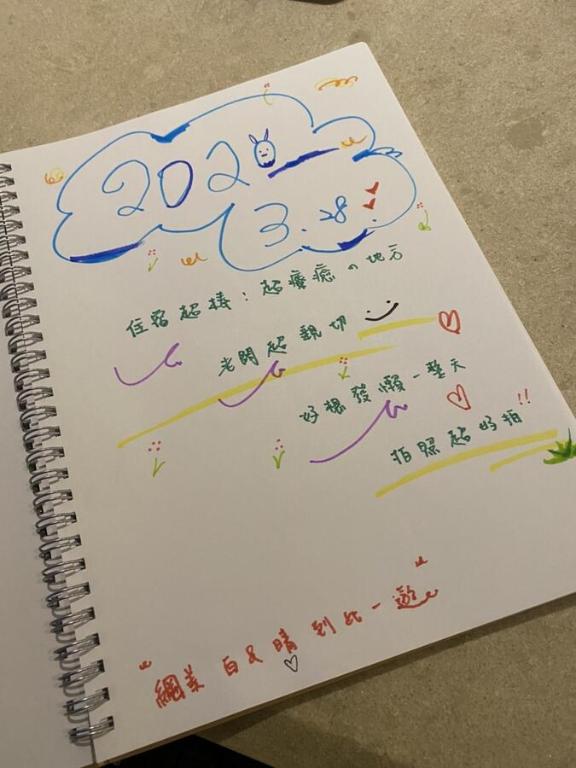 2020
3.28.
住宿超棒:超療癒の地方
老闆超親切
好想發懶一整天
拍照超好拍!!
"網美白&晴到此一遊"